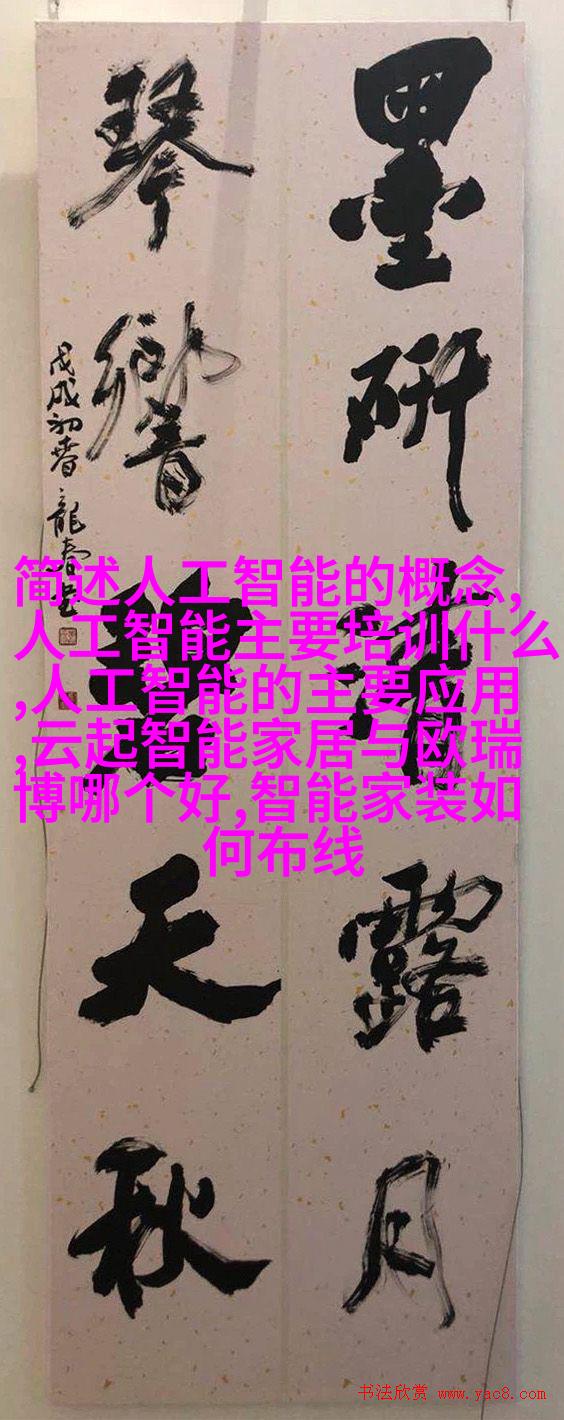 墨研清露月
琴響碧天秋
戊戌初春龍
简述人工智能的概念,
人工智能主要培训什么
,人工智能的主要应用
,云起智能家居与欧瑞
博哪个好,智能家装如
何布线
书法欣赏 www.yac8.com